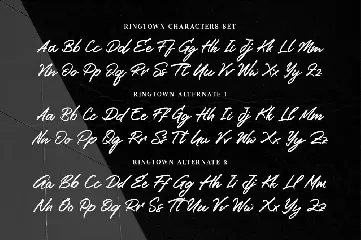 RINGTOWN CHARACTERS SET
Aa Bb Cc Dd Ee Ff Gg Hh Ii Jj Kk Ll Mm
Nn Oo Pp Qq Rr Ss Tt Uu Vv Ww Xx Yy Zz
RINGTOWN ALTERNATE 1
Aa Bb Cc Dd Ee Ff Gg Hh Ii Jj Kk Ll Mm
Nn Oo Pp Qq Rr Ss Tt Uu Vv Ww Xx Yy Zz
RINGTOWN ALTERNATE 2
Aa Bb Cc Dd Ee Ff Gg Hh Ii Jj Kk Ll Mm
Nn Oo Pp Qq Rr Ss Tt Uu Vv Ww Xx Yy Zz